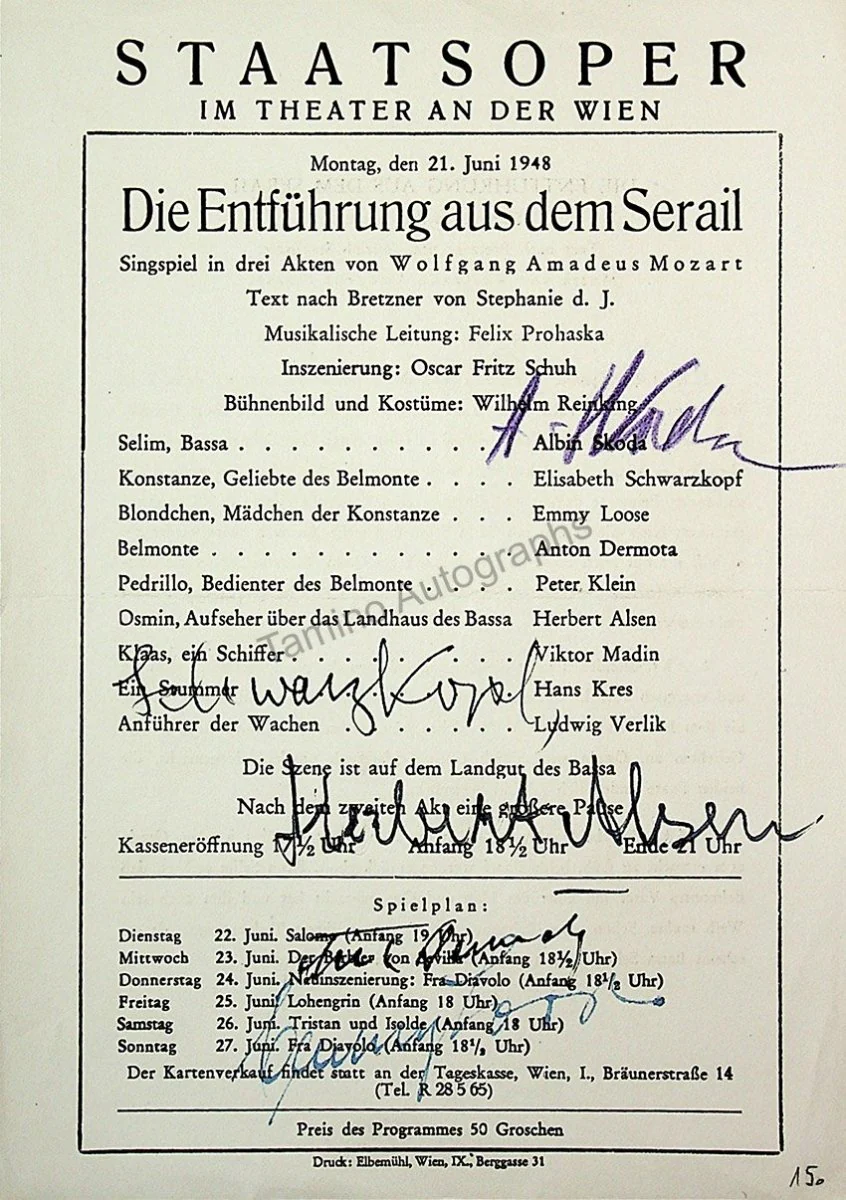 STAATSOPER
IM THEATER AN DER WIEN
Montag, den 21. Juni 1948
Die Entführung aus dem Serail
Singspiel in drei Akten von Wolfgang Amadeus Mozart
Text nach Bretzner von Stephanie d. J.
Musikalische Leitung: Felix Prohaska
Inszenierung: Oscar Fritz Schuh
Bühnenbild und Kostüme: Wilhelm Reinking
A. Skoda
Selim, Bassa . . . . . . . . . . . Albin Skoda
Konstanze, Geliebte des Belmonte . . . . Elisabeth Schwarzkopf
Blondchen, Mädchen der Konstanze . . . Emmy Loose
Belmonte . . . . . . . . . . . . Anton Dermota
Pedrillo, Bedienter des Belmonte . . . . . Peter Klein
Tamino Autographs
Osmin, Aufseher über das Landhaus des Bassa Herbert Alsen
Klaas, ein Schiffer . . . . . . . . . Viktor Madin
Ein Stummer . . . . . . . . . . . Hans Kres
Schwarzkopf
Anführer der Wachen . . . . . . . Ludwig Verlik
Die Szene ist auf dem Landgut des Bassa
Nach dem zweiten Akt eine größere Pause
Herbert Alsen
Kasseneröffnung 17½ Uhr Anfang 18½ Uhr Ende 21 Uhr
Spielplan:
Dienstag 22. Juni. Salome (Anfang 19 Uhr)
Mittwoch 23. Juni. Der Barbier von Sevilla (Anfang 18½ Uhr)
Donnerstag 24. Juni. Neuinszenierung: Fra Diavolo (Anfang 18½ Uhr)
Freitag 25. Juni. Lohengrin (Anfang 18 Uhr)
Samstag 26. Juni. Tristan und Isolde (Anfang 18 Uhr)
Sonntag 27. Juni. Fra Diavolo (Anfang 18½ Uhr)
Der Kartenverkauf findet statt an der Tageskasse, Wien, I., Bräunerstraße 14
(Tel. R 28 5 65)
Preis des Programmes 50 Groschen
Druck: Elbemühl, Wien, IX., Berggasse 31
150